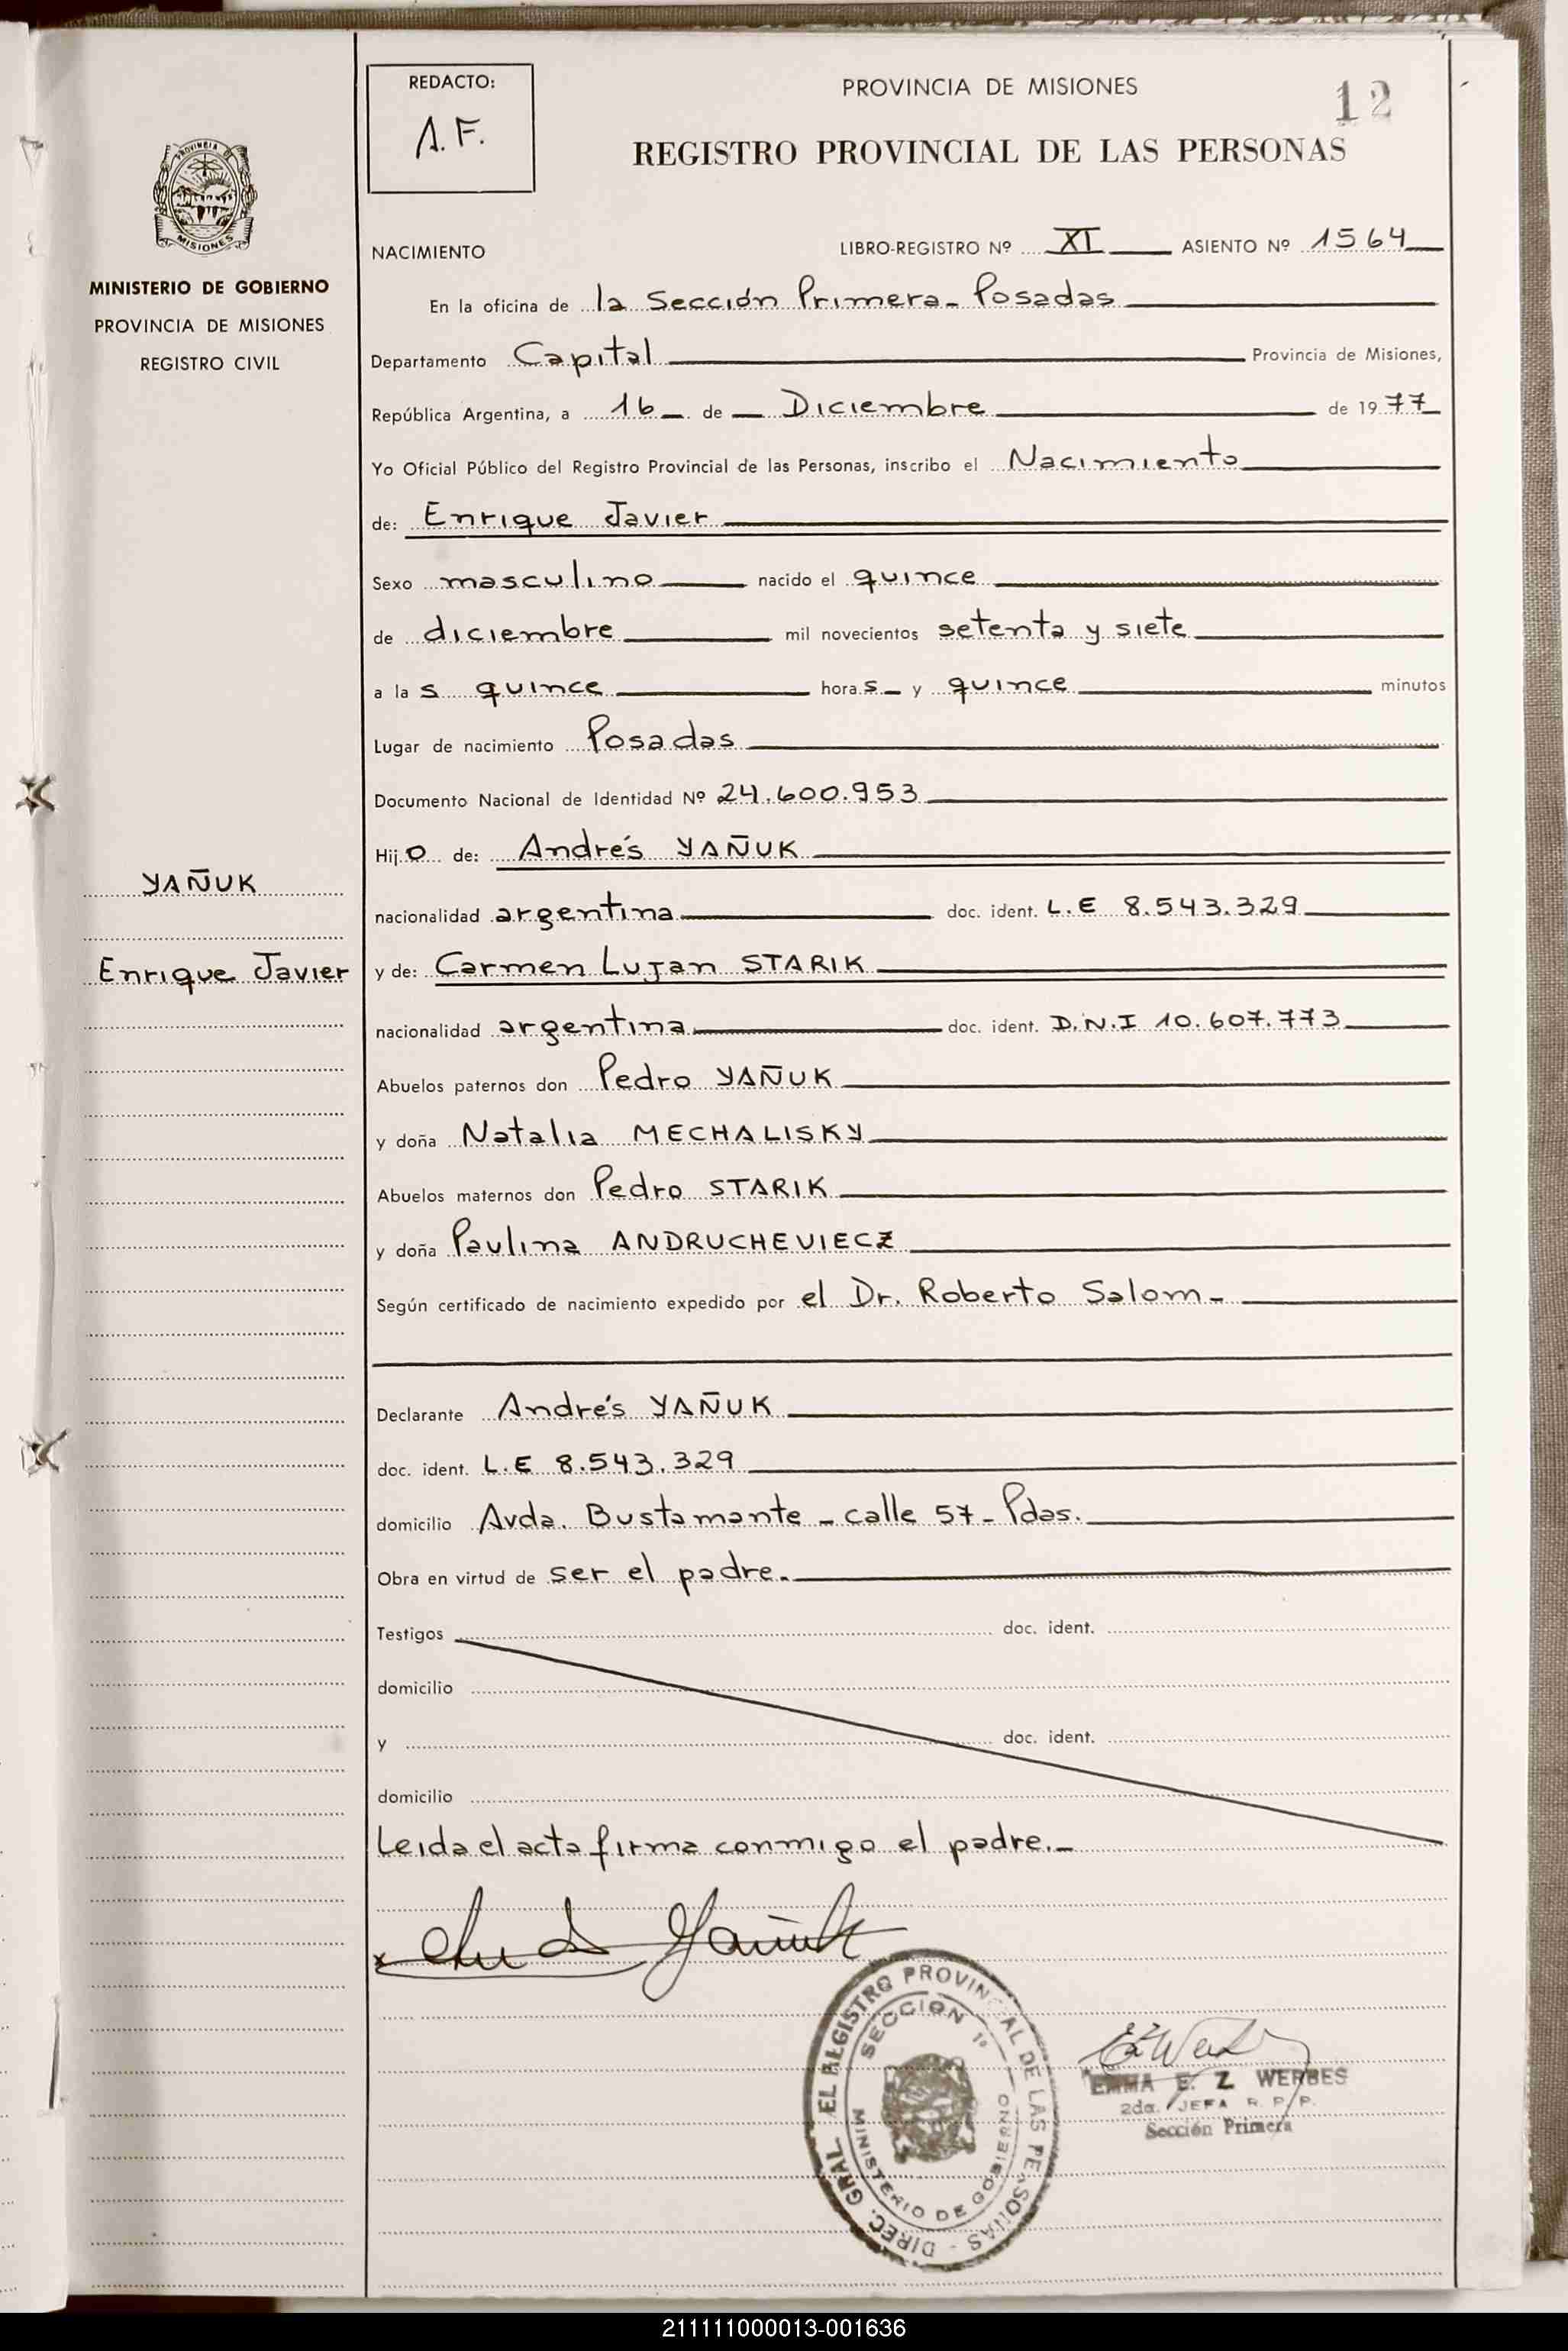 REDACTO:
A.F.
PROVINCIA DE MISIONES
12
REGISTRO PROVINCIAL DE LAS PERSONAS
PROVINCIA DE
MISIONES
MINISTERIO DE GOBIERNO
PROVINCIA DE MISIONES
REGISTRO CIVIL
NACIMIENTO LIBRO-REGISTRO Nº XI ASIENTO Nº 1564
En la oficina de la Sección Primera - Posadas
Departamento Capital Provincia de Misiones,
República Argentina, a 16 de Diciembre de 1977
Yo Oficial Público del Registro Provincial de las Personas, inscribo el Nacimiento
de: Enrique Javier
Sexo masculino nacido el quince
de diciembre mil novecientos setenta y siete
a las quince horas y quince minutos
Lugar de nacimiento Posadas
Documento Nacional de Identidad Nº 24.600.953
Hijo de: Andrés YAÑUK
YAÑUK
nacionalidad argentina doc. ident. L.E 8.543.329
Enrique Javier
y de: Carmen Lujan STARIK
nacionalidad argentina doc. ident. D.N.I 10.607.773
Abuelos paternos don Pedro YAÑUK
y doña Natalia MECHALISKY
Abuelos maternos don Pedro STARIK
y doña Paulina ANDRUCHEVIECZ
Según certificado de nacimiento expedido por el Dr. Roberto Salom -
Declarante Andrés YAÑUK
doc. ident. L.E 8.543.329
domicilio Avda. Bustamante - calle 57 - Pdas.
Obra en virtud de ser el padre.
Testigos doc. ident.
domicilio
y doc. ident.
domicilio
Leida el acta firma conmigo el padre.-
x Yañuk
DIREC. GRAL. EL REGISTRO PROVINCIAL DE LAS PERSONAS -
SECCION 1º
MINISTERIO DE GOBIERNO
EMMA E. Z WERBES
2da. JEFA R. P. P.
Sección Primera
211111000013-001636